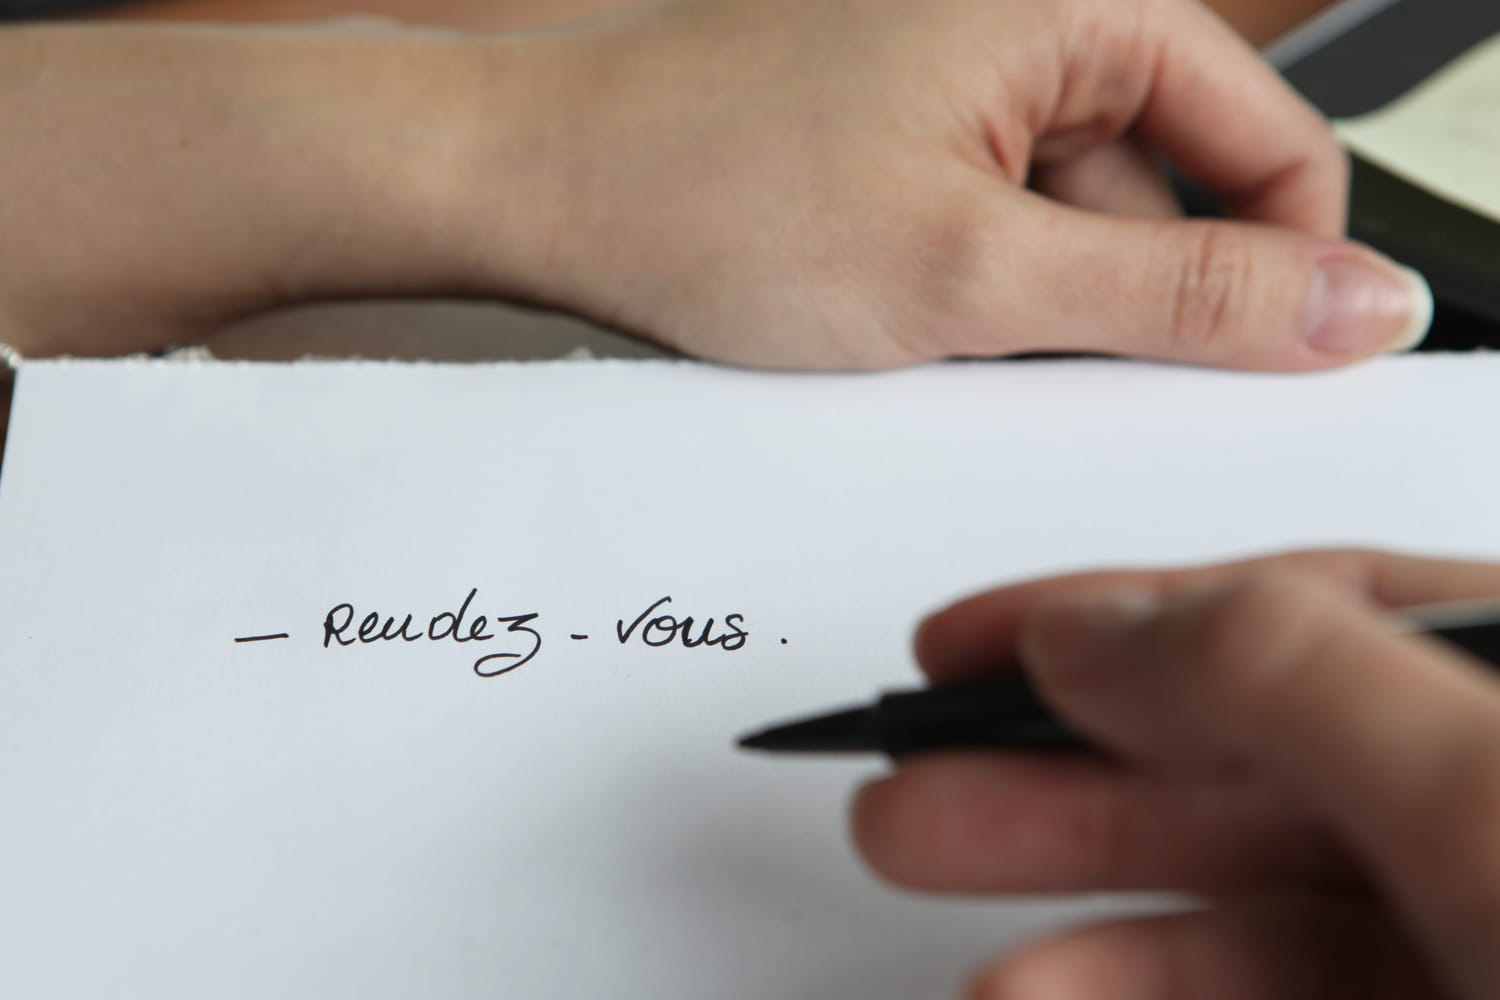 — Rendez-vous.